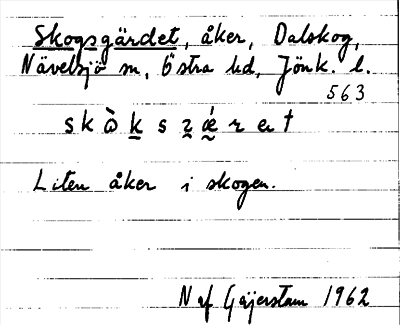 Skogsgärdet, åker, Dalskog,
Nävelsjö sn, Östra hd, Jönk. l.
563
Liten åker i skogen.
N af Geijerstam 1962